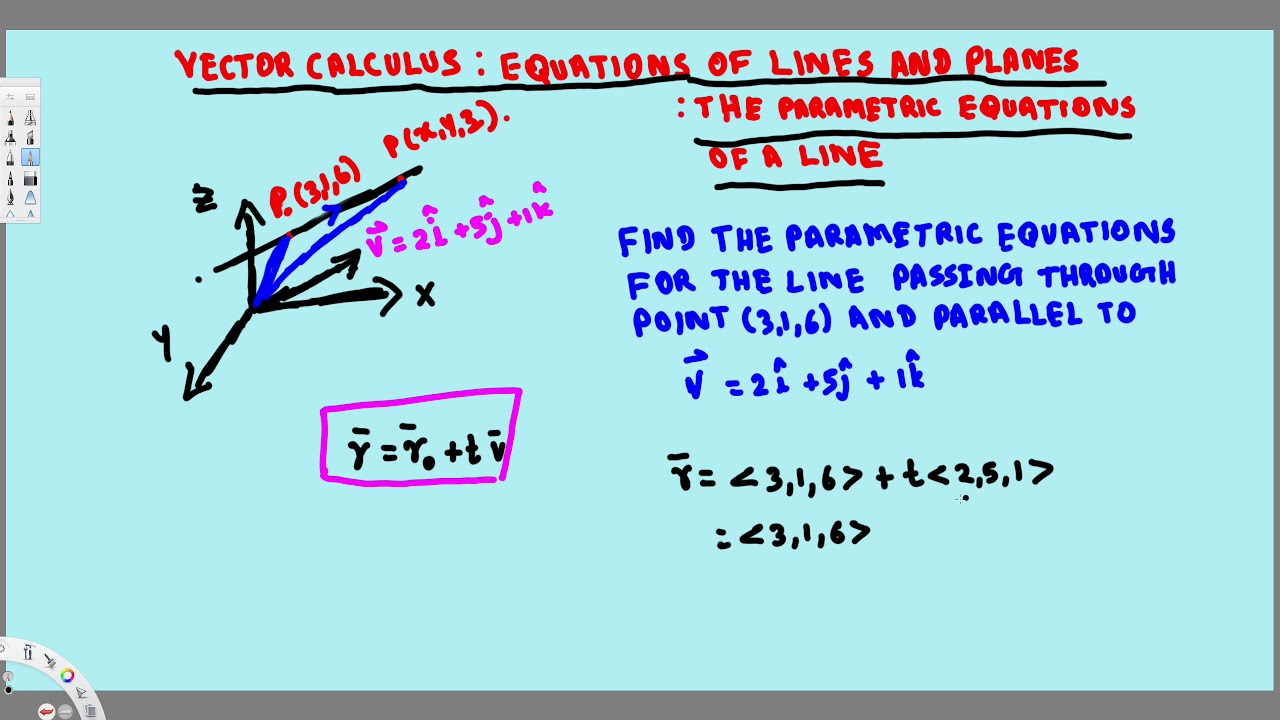 VECTOR CALCULUS : EQUATIONS OF LINES AND PLANES
: THE PARAMETRIC EQUATIONS
OF A LINE
P(x,y,z).
P₀(3,1,6)
Z
v⃗ = 2î + 5ĵ + 1k̂
X
Y
r̄ = r̄₀ + t v̄
FIND THE PARAMETRIC EQUATIONS
FOR THE LINE PASSING THROUGH
POINT (3,1,6) AND PARALLEL TO
v⃗ = 2î + 5ĵ + 1k̂
r̄ = <3,1,6> + t<2,5,1>
= <3,1,6>